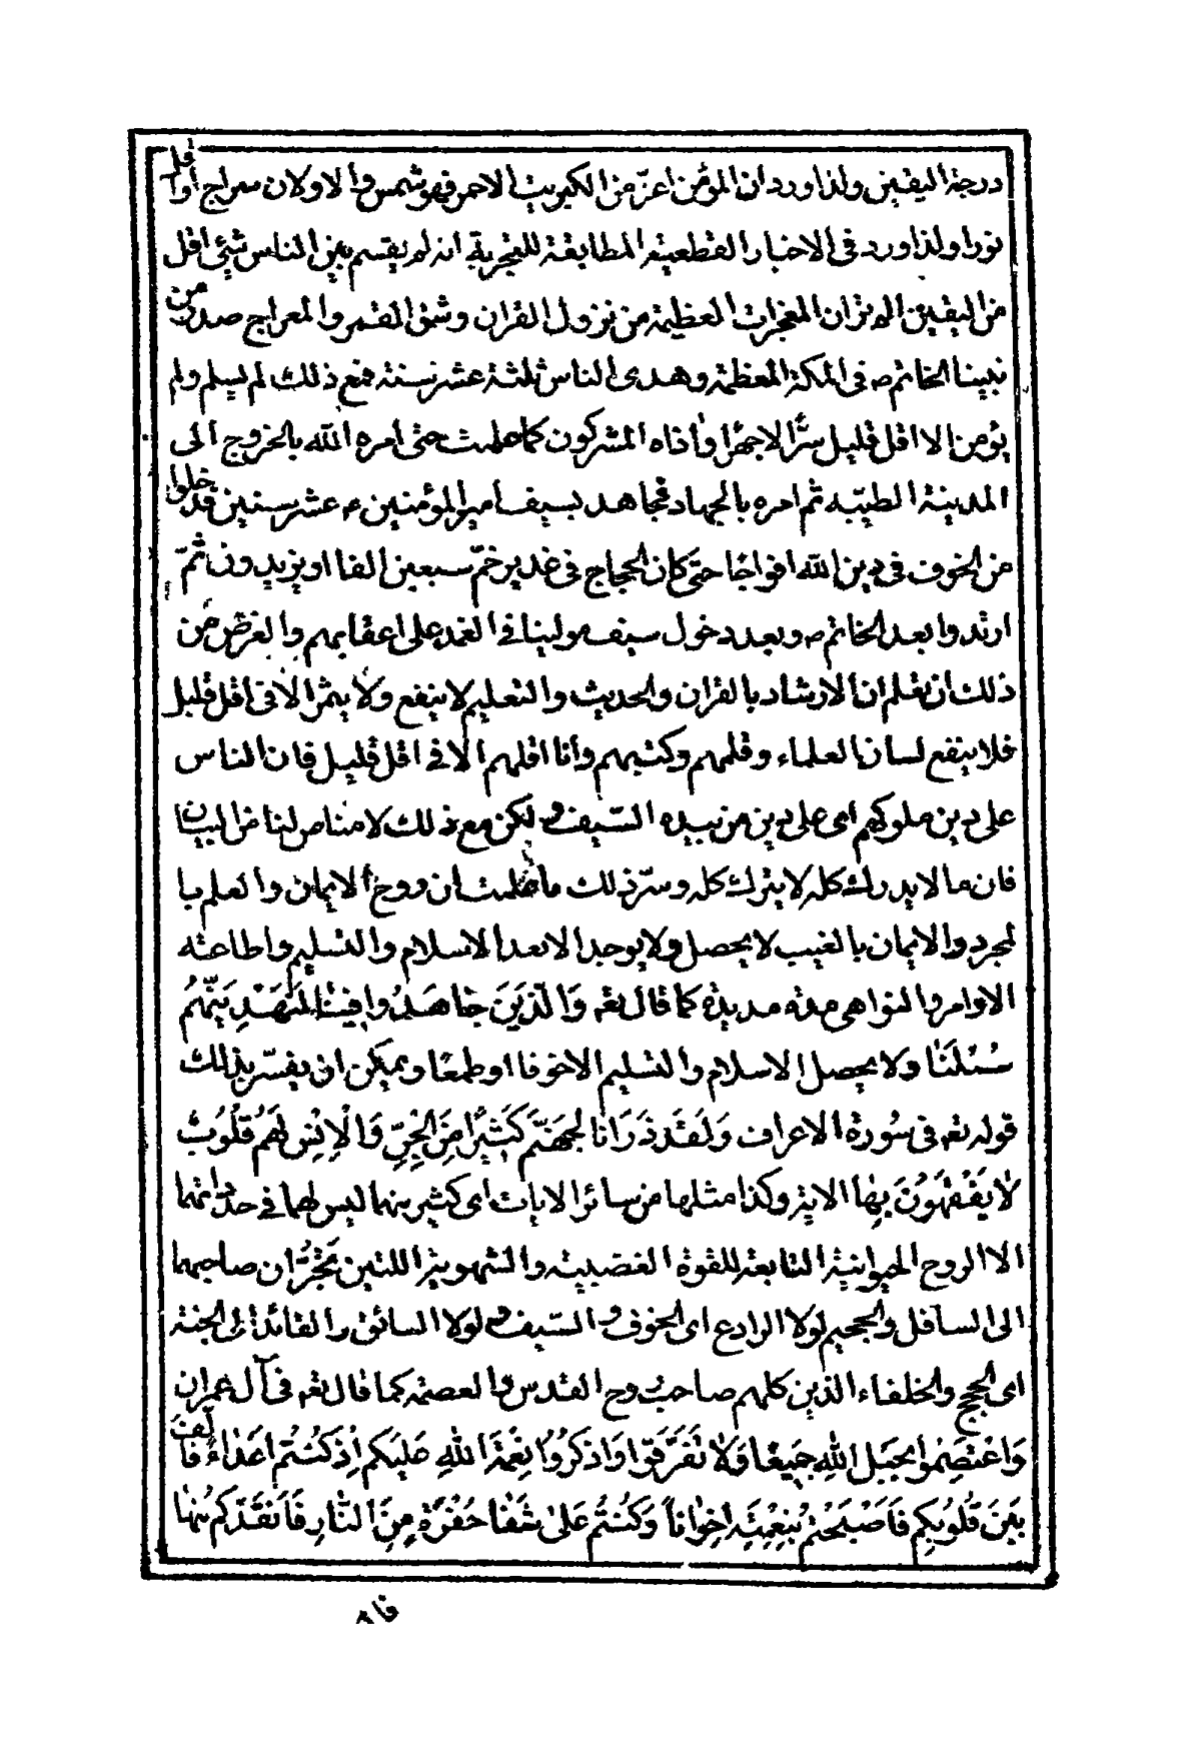 درجة اليقين ولذا ورد ان المؤمن اعزّ من الكبريت الاحمر فهو شمس والاولان سراج او اقل
نورا ولذا ورد فى الاخبار القطعية المطابقة للتجربة انه لم يقسم بين الناس شئ اقل
من اليقين الم تر ان المعجزات العظيمة من نزول القران وشق القمر والمعراج صدر من
نبينا الخاتم ص فى المكة المعظمة وهدى الناس ثلثة عشر سنة فمع ذلك لم يسلم ولم
يؤمن الا اقل قليل سرًّا لا جهرًا واذاه المشركون كما علمت حتى امره الله بالخروج الى
المدينة الطيّبه ثم امره بالجهاد فجاهد بسيف أمير المؤمنين ع عشر سنين فدخلوا
من الخوف فى دين الله افواجًا حتى كان الحجاج فى غدير خمّ سبعين الفا او يزيدون ثمّ
ارتدوا بعد الخاتم ص وبعد دخول سيف مولينا فى الغمد على اعقابهم والغرض من
ذلك ان تعلم ان الارشاد بالقران والحديث والتعليم لا ينفع ولا يثمر الا فى اقل قليل
فلا ينفع لسان العلماء وقلمهم وكتبهم وأنا اقلهم الا فى اقل قليل فان الناس
على دين ملوكهم اى على دين من بيده السّيف ولكن مع ذلك لا مناص لنا من البيان
فان ما لا يدرك كله لا يترك كله وسرّ ذلك ما علمت ان روح الايمان والعلم با
لمجرد والايمان بالغيب لا يحصل ولا يوجد الا بعد الاسلام والتسليم واطاعته
الاوامر والنواهى مدة مديدة كما قال تعه وَالَّذينَ جَاهَدُوا فِينَا لَنَهْدِيَنَّهُمْ
سُبُلَنَا ولا يحصل الاسلام والتسليم الا خوفا او طمعًا ويمكن ان يفسّر بذلك
قوله تعه فى سُورة الاعراف وَلَقَد ذَرَانَا لِجَهَنَّمَ كَثيرًا مِنَ الْجِنِّ وَالْاِنْسِ لَهُم قُلُوبٌ
لَا يَفْقَهُونَ بِهَا الاية وكذا مثلها من سائر الايات اى كثير منهما ليس لهما فى حدّ ذاتهما
الا الروح الحيوانية التابعة للقوة الغضبية والشهوية اللتين تَجُرَّان صاحبهما
الى السافل والجحيم لولا الرادع اى الخوف و السّيف ولولا السائق والقائد الى الجنة
اى الحجج والخلفاء الذين كلهم صاحب روح القدس والعصمة كما قال تعه فى آل عمران
وَاعْتَصِمُوا بِحَبلِ اللهِ جَمِيعًا وَلَا تَفَرَّقَوا وَاذكُرُوا نِعْمَةَ اللهِ عَلَيكُم اِذ كُنتُم اَعدَاءً فَاَلَّفَ
بَينَ قُلُوبِكُم فَاَصْبَحْتُم بِنِعْمَتِهِ اِخوَاناً وَكُنتُم عَلَىٰ شَفَا حُفْرَةٍ مِنَ النَّارِ فَاَنقَذَكُم مِنهَا